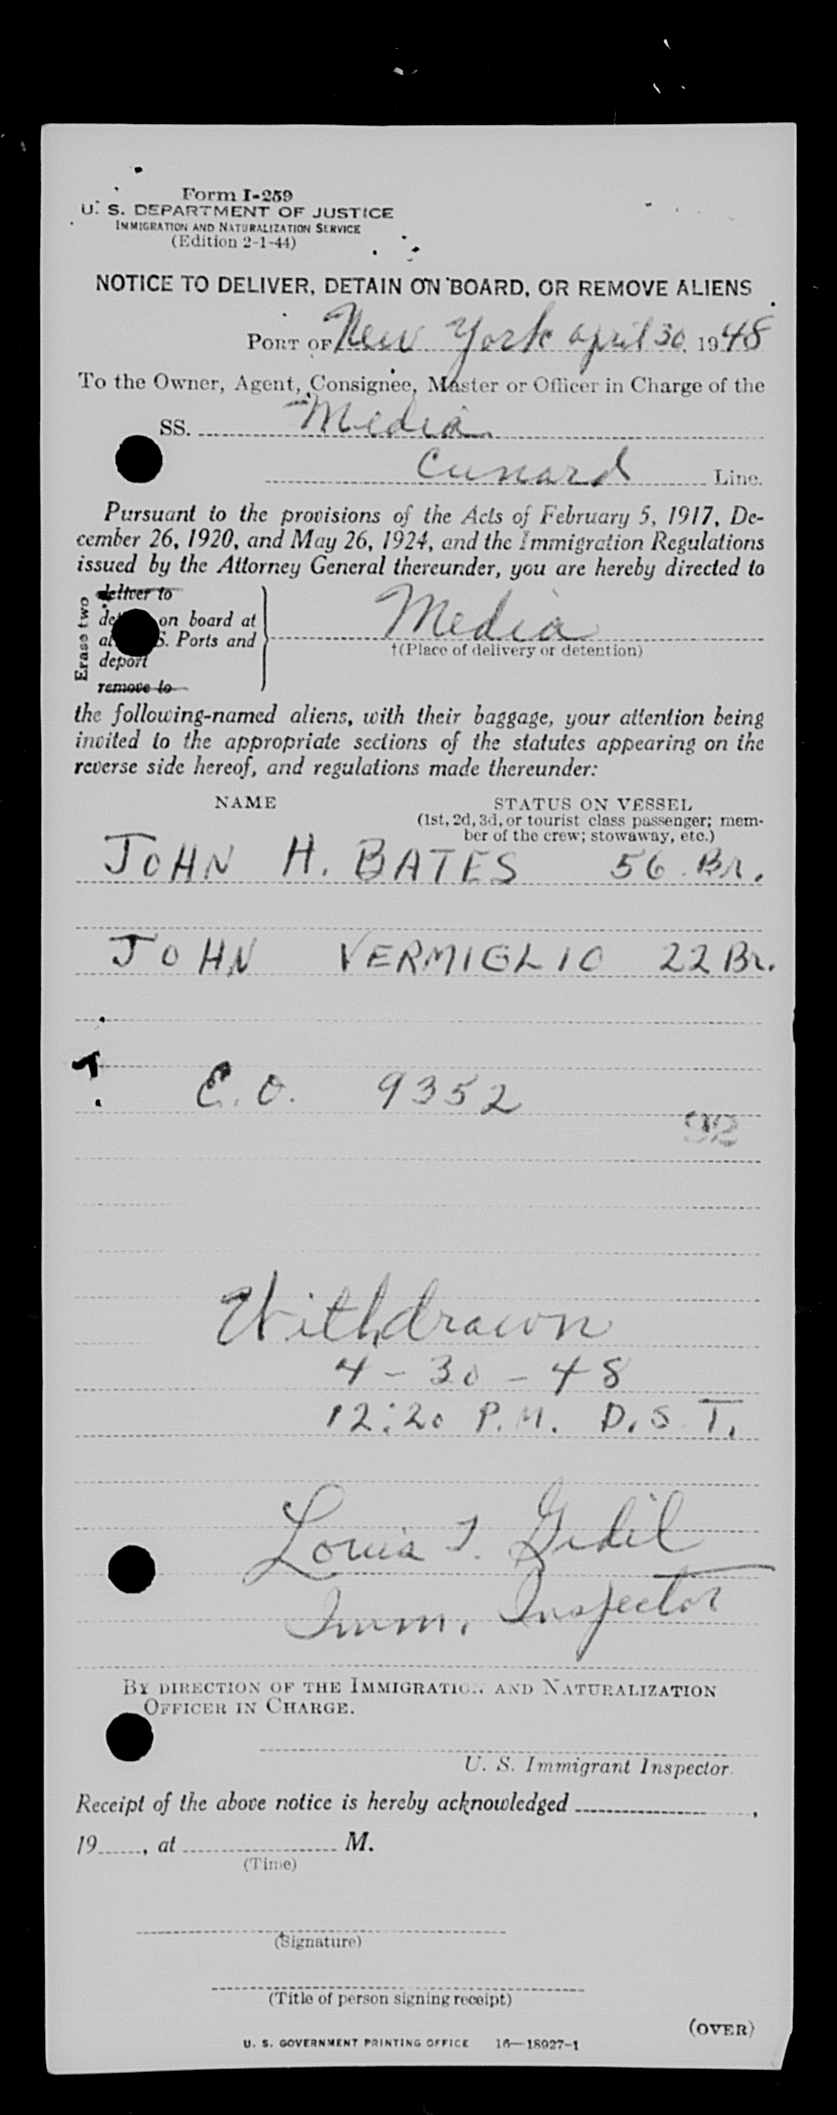 Form I-259
U. S. DEPARTMENT OF JUSTICE
IMMIGRATION AND NATURALIZATION SERVICE
(Edition 2-1-44)
NOTICE TO DELIVER, DETAIN ON BOARD, OR REMOVE ALIENS
PORT OF New York april 30, 1948
To the Owner, Agent, Consignee, Master or Officer in Charge of the
SS. Media
Cunard Line.
Pursuant to the provisions of the Acts of February 5, 1917, De-
cember 26, 1920, and May 26, 1924, and the Immigration Regulations
issued by the Attorney General thereunder, you are hereby directed to
Erase two
deliver to
on board at
S. Ports and
deport
remove to
Media
†(Place of delivery or detention)
the following-named aliens, with their baggage, your attention being
invited to the appropriate sections of the statutes appearing on the
reverse side hereof, and regulations made thereunder:
NAME STATUS ON VESSEL
(1st, 2d, 3d, or tourist class passenger; mem-
ber of the crew; stowaway, etc.)
JOHN H. BATES 56 Br.
JOHN VERMIGLIO 22 Br.
E.O. 9352
Withdrawn
4-30-48
12:20 P.M. D.S.T.
Louis J.
Imm. Inspector
BY DIRECTION OF THE IMMIGRATION AND NATURALIZATION
OFFICER IN CHARGE.
U. S. Immigrant Inspector.
Receipt of the above notice is hereby acknowledged ,
19 , at M.
(Time)
(Signature)
(Title of person signing receipt)
(OVER)
U. S. GOVERNMENT PRINTING OFFICE 16—18927-1